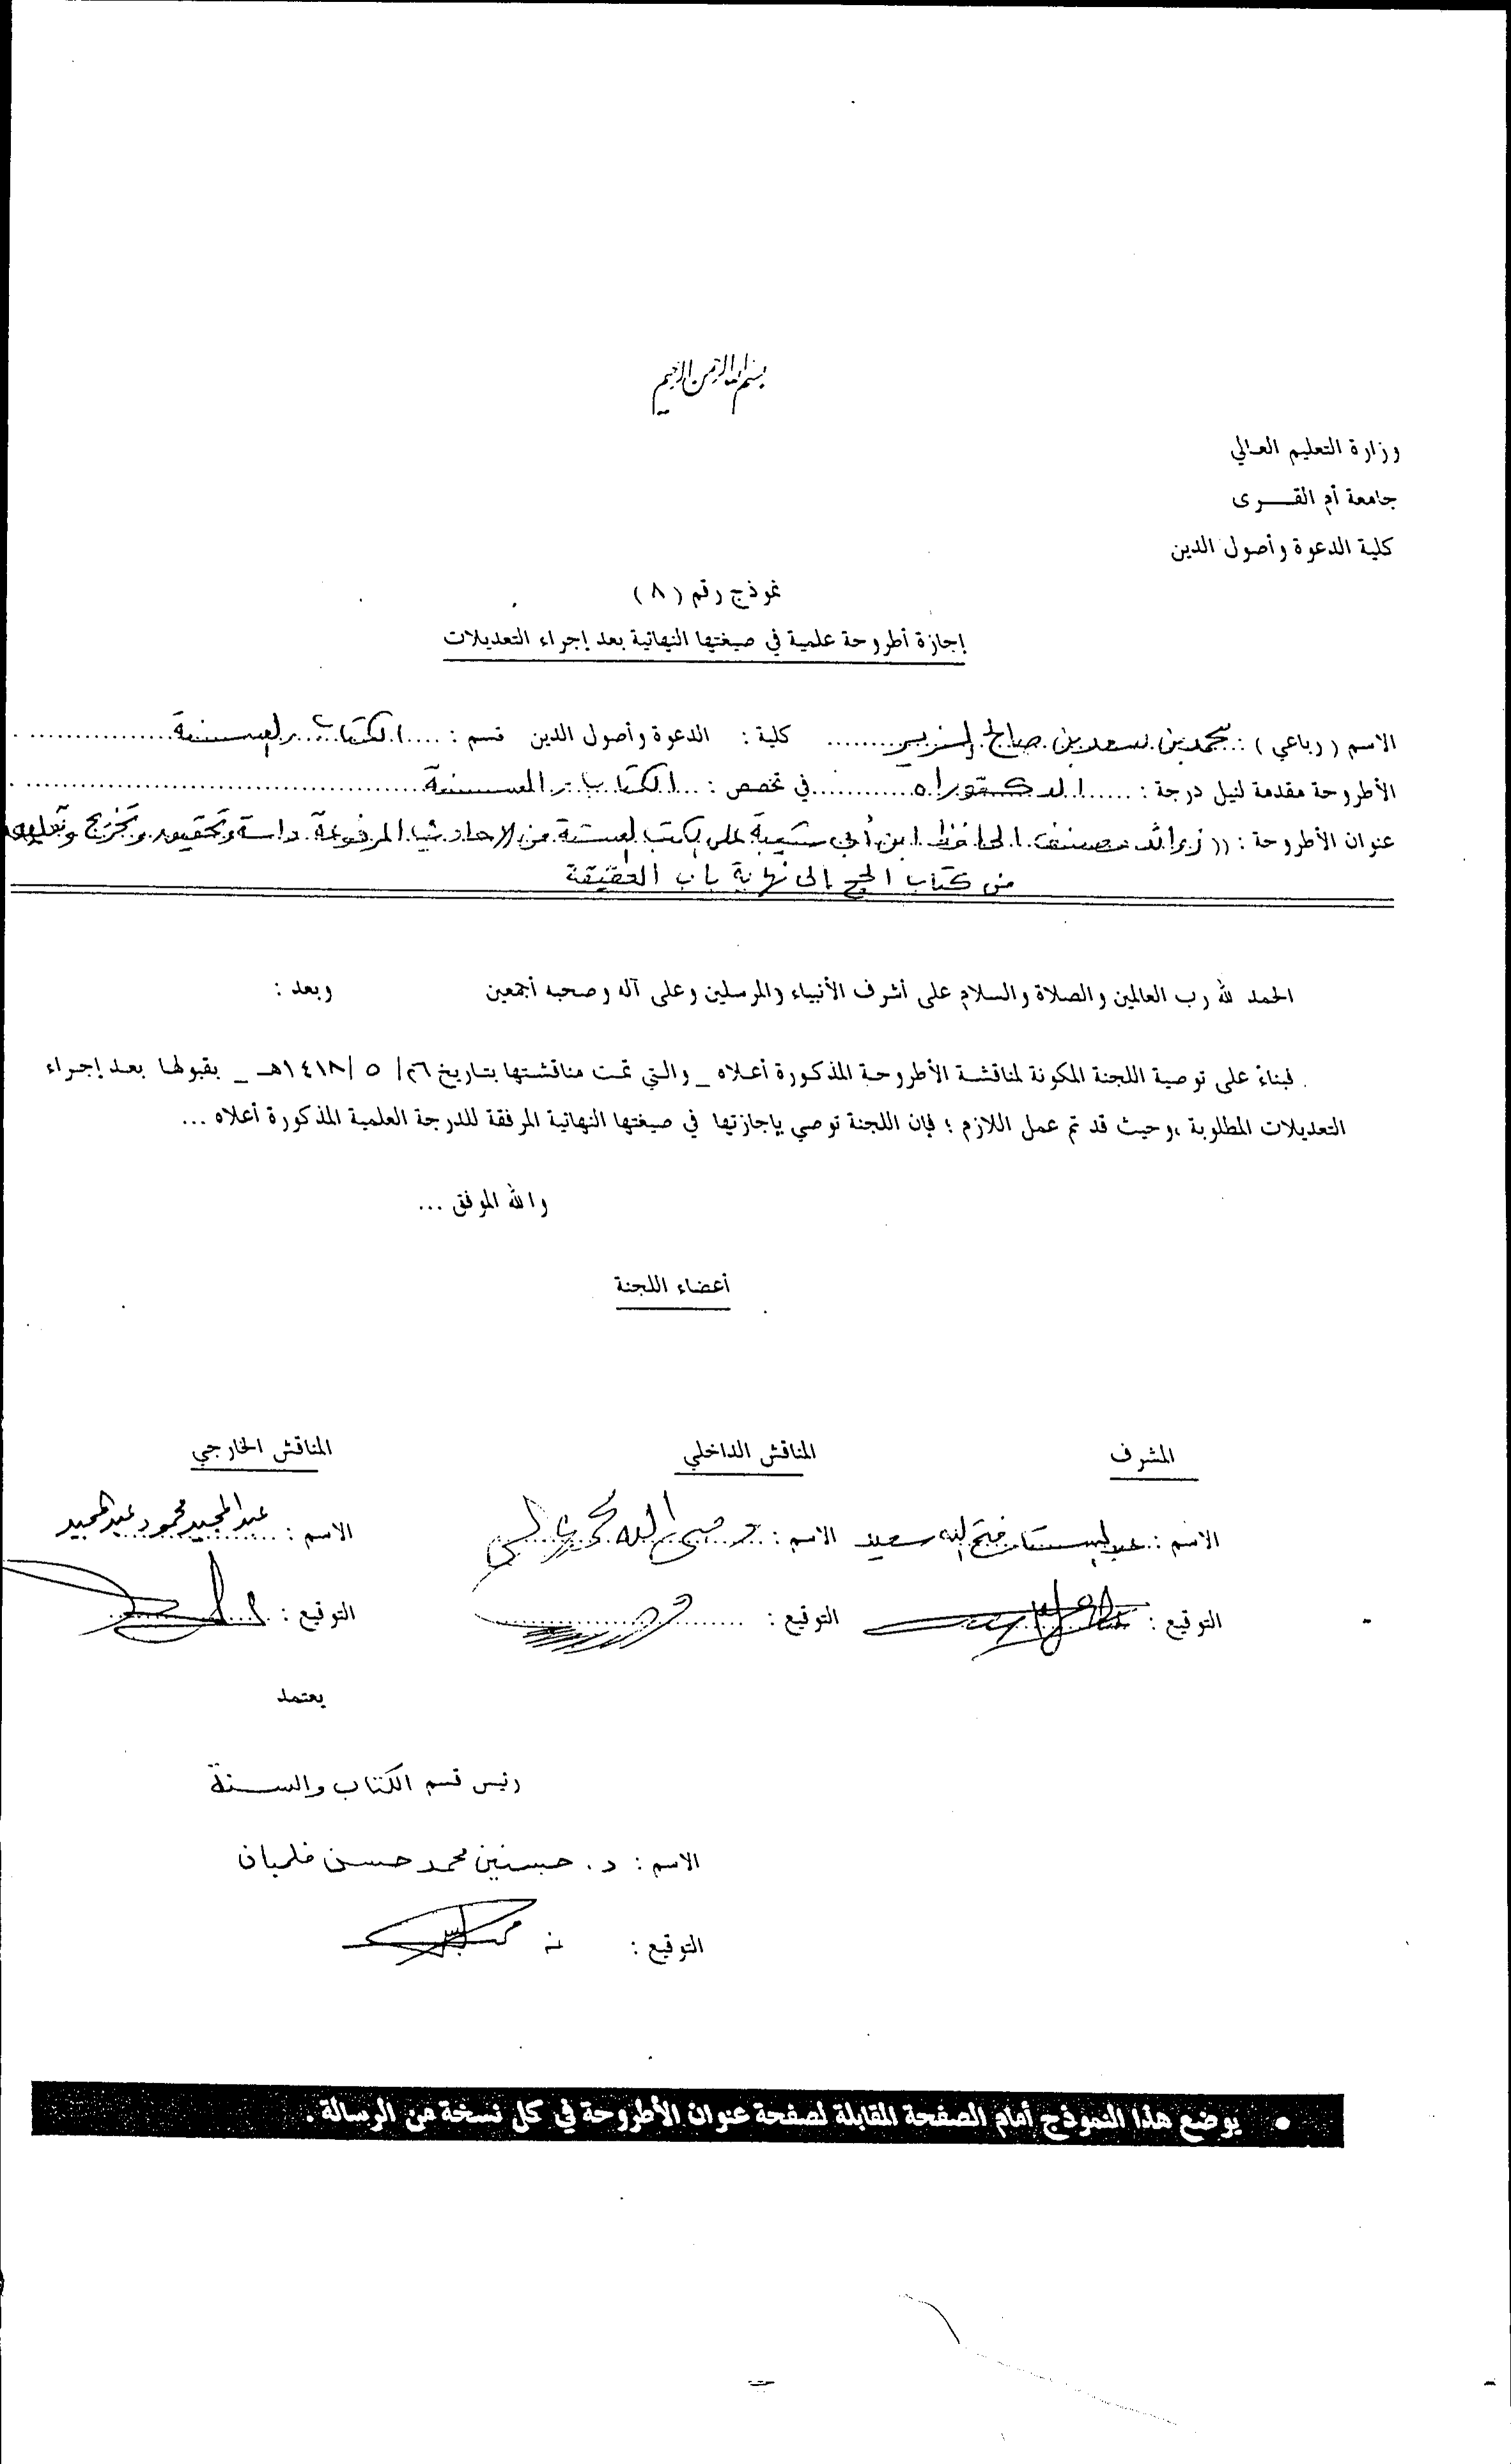 بسم الله الرحمن الرحيم
وزارة التعليم العالي
جامعة أم القــــرى
كلية الدعوة وأصول الدين
نموذج رقم ( ٨ )
إجازة أطروحة علمية في صيغتها النهائية بعد إجراء التعديلات
الاسم ( رباعي ) : محمد بن سعد بن صالح كلية : الدعوة وأصول الدين قسم : الكتاب والسنة
الأطروحة مقدمة لنيل درجة : الدكتوراه في تخصص : الكتاب والسنة
عنوان الأطروحة : (( زوائد مصنف الحافظ ابن أبي شيبة على الكتب الستة من الأحاديث المرفوعة دراسة وتحقيق وتخريج وتعليق
من كتاب الحج إلى نهاية باب العقيقة
الحمد لله رب العالمين والصلاة والسلام على أشرف الأنبياء والمرسلين وعلى آله وصحبه أجمعين وبعد :
فبناءً على توصية اللجنة المكونة لمناقشة الأطروحة المذكورة أعلاه _ والتي تمت مناقشتها بتاريخ ٢٦/ ٥ /١٤١٨هـ _ بقبولها بعد إجراء
التعديلات المطلوبة ، وحيث قد تم عمل اللازم ؛ فإن اللجنة توصي بإجازتها في صيغتها النهائية المرفقة للدرجة العلمية المذكورة أعلاه ...
والله الموفق ...
أعضاء اللجنة
المشرف المناقش الداخلي المناقش الخارجي
الاسم : عبد الستار فتح الله سعيد الاسم : وصي الله محمد عباس الاسم : عبد المجيد محمود عبد المجيد
التوقيع : التوقيع : التوقيع :
يعتمد
رئيس قسم الكتاب والسنة
الاسم : د . حسنين محمد حسن فلمبان
التوقيع :
• يوضع هذا النموذج أمام الصفحة المقابلة لصفحة عنوان الأطروحة في كل نسخة من الرسالة .